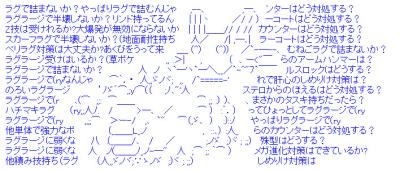 ラグで詰まないか？やっぱりラグで詰むんじゃ
ンターはどう対処する？
ラグラージで半壊しないか？リンド持ってるん
ーコートはどう対処する？
Z技は受けれるか？大爆発が無効にならないか
カウンターはどう対処する？
スカーフラグで半壊しないか？（地面耐性持ち
ーコートはどう対処する？
ベリラグ対策は大丈夫か？あくびをうって来
むねごラグで詰まないか？
ラグラージ受けはいるか？（草ボケ
らのアームハンマーは？
ラグラージで詰まないか？
ルスロックはどうする？
ラグラージで(ryなんじゃ
れで肝心のしめりけ対策は？
のろいラグラージ
ステロからのほえるはどう対処する？
ラグラージで(r
まさかのタスキ持ちだったら？
ハチマキラグ
ってひょっとしてラグラージで(ry
ラグラージで(ry
やっぱりラグラージで(ry
他単体で強力なポ
らのカウンターはどう対処する？
ラグラージに弱くな
殊型はどうする？
ラグラージに弱くな
メガ進化対策はできているか？
他積み技持ち（ラグ
しめりけ対策は